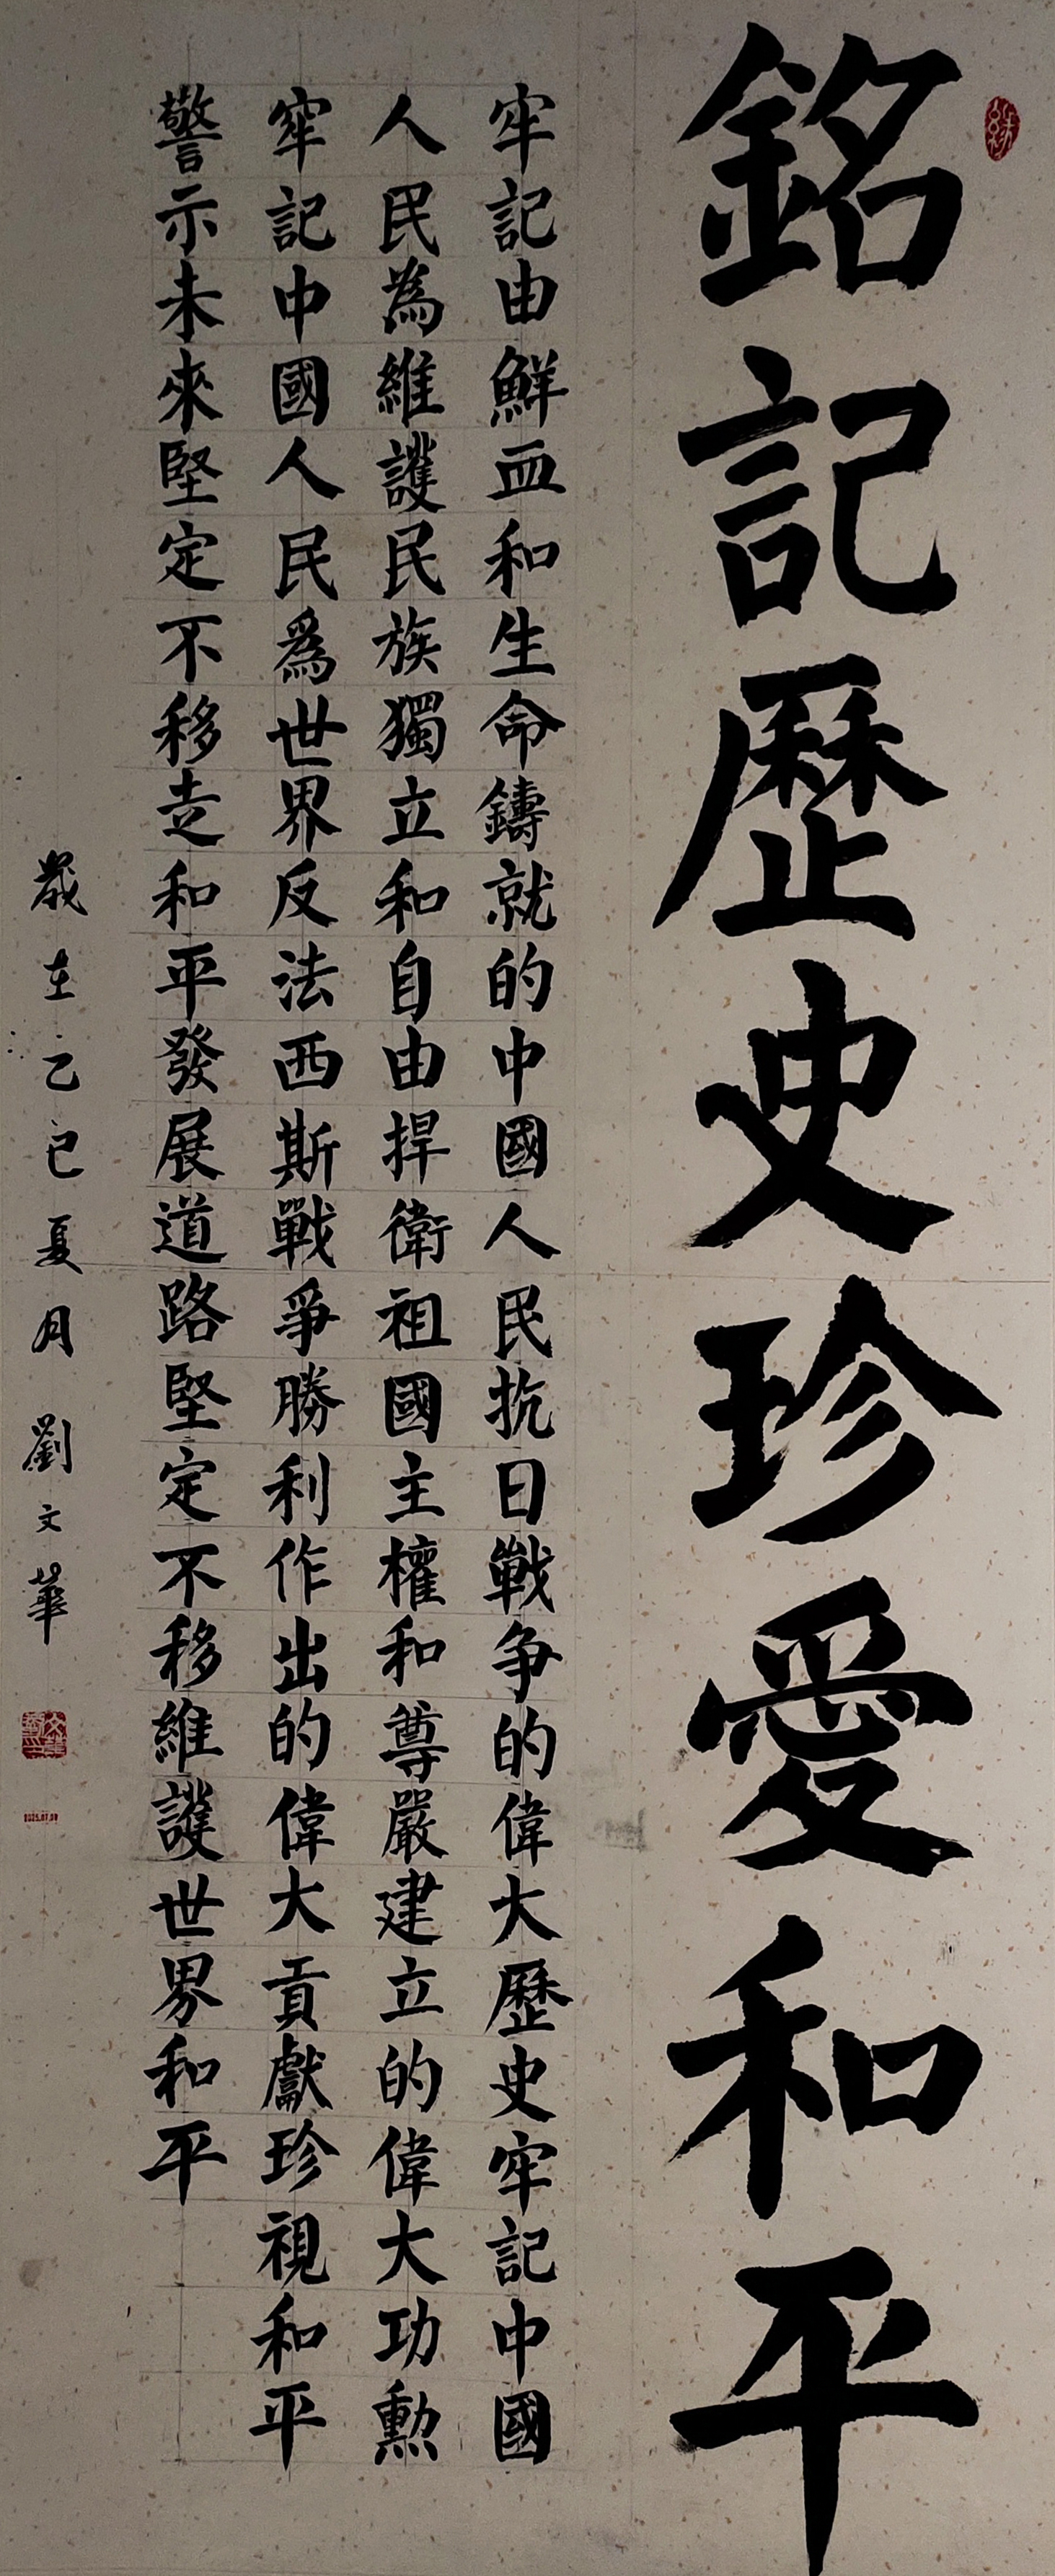 銘記歷史珍愛和平
牢記由鮮血和生命鑄就的中國人民抗日戰争的偉大歷史牢記中國
人民為維護民族獨立和自由捍衛祖國主權和尊嚴建立的偉大功勲
牢記中國人民爲世界反法西斯戰爭勝利作出的偉大貢獻珍視和平
警示未來堅定不移走和平發展道路堅定不移維護世界和平
歲在乙巳夏月 劉文華